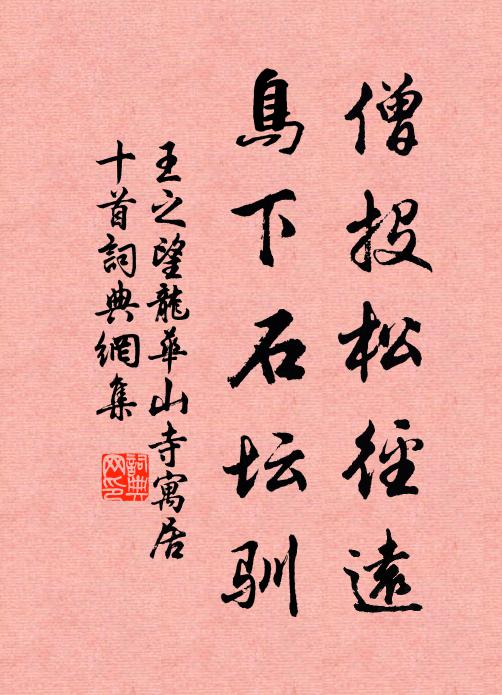 僧投松径遠
鳥下石坛驯
王之望龍華山寺寓居
十首詞典網集
詞典网印